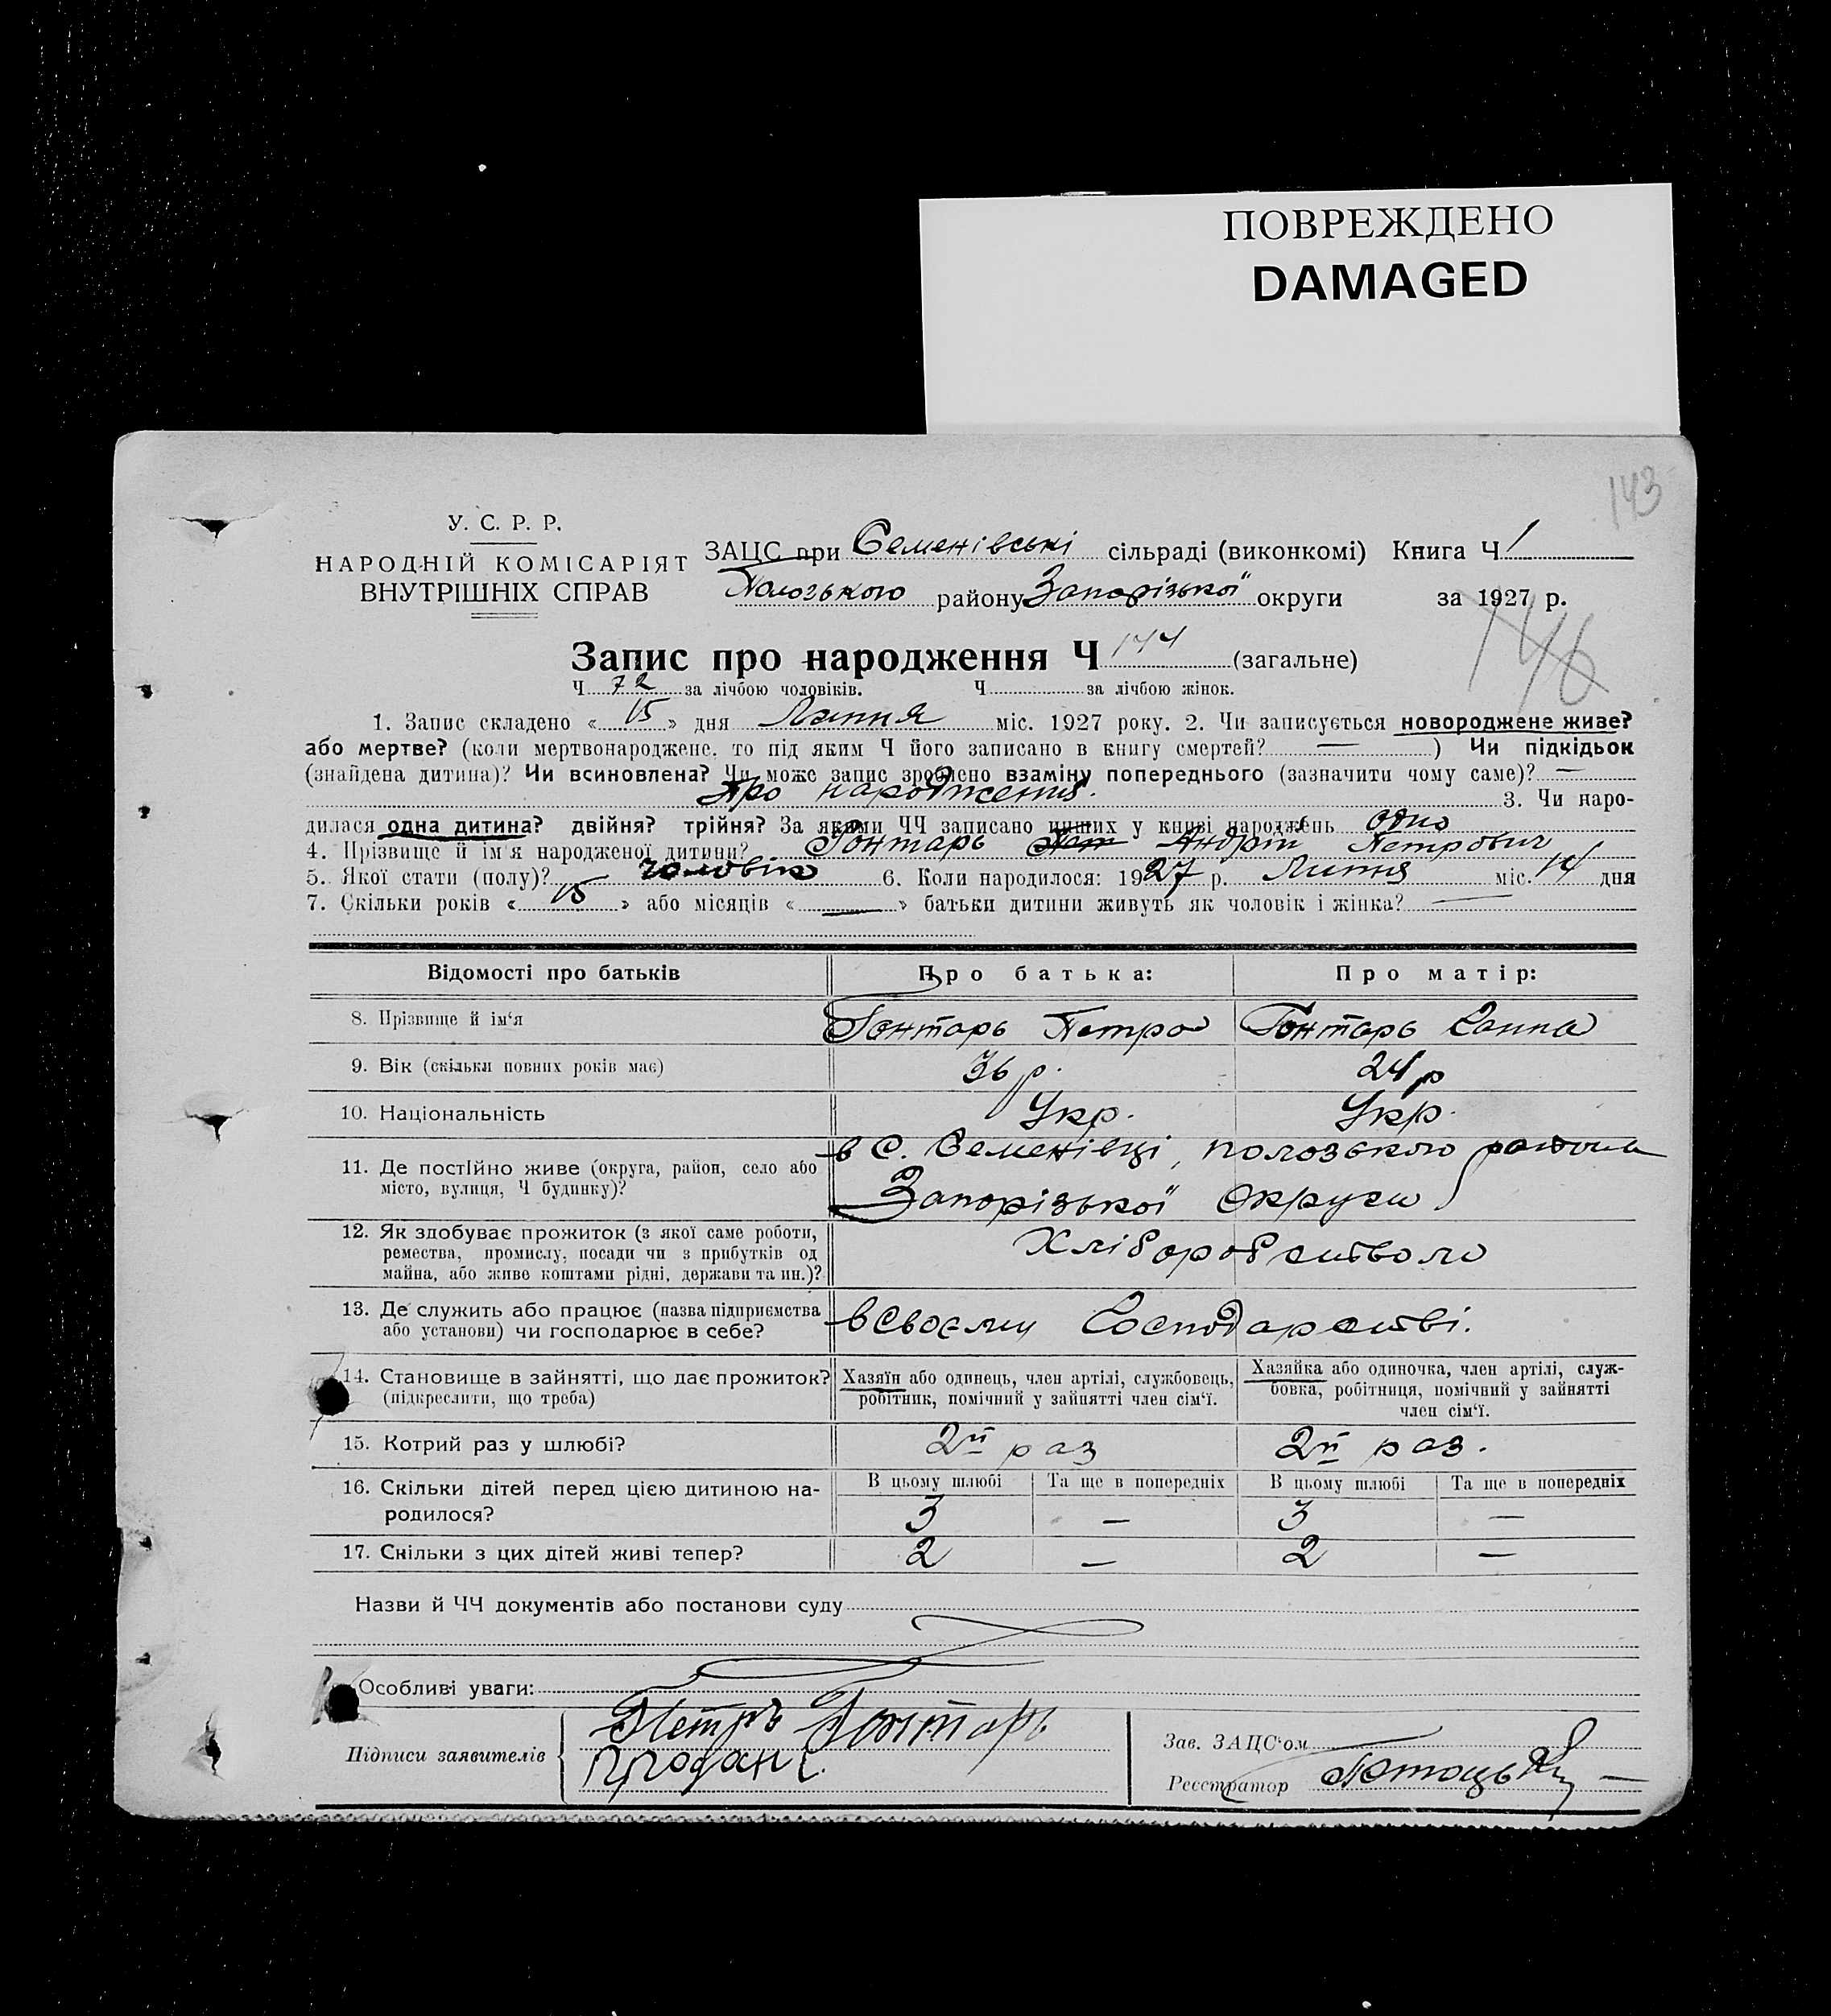 ПОВРЕЖДЕНО
DAMAGED
143
У. С. Р. Р.
НАРОДНІЙ КОМІСАРІЯТ
ВНУТРІШНІХ СПРАВ
ЗАЦС при Семенівські сільраді (виконкомі) Книга Ч 1
Пологського району Запорізької округи за 1927 р.
146
Запис про народження Ч 144 (загальне)
Ч 72 за лічбою чоловіків. Ч за лічбою жінок.
1. Запис складено « 15 » дня Липня міс. 1927 року. 2. Чи записується новороджене живе?
або мертве? (коли мертвонароджене, то під яким Ч його записано в книгу смертей? — ) Чи підкідьок
(знайдена дитина)? Чи всиновлена? Чи може запис зроблено взаміну попереднього (зазначити чому саме)? —
про народження. 3. Чи наро-
дилася одна дитина? двійня? трійня? За якими ЧЧ записано инших у книзі народжень одно
4. Прізвище й ім'я народженої дитини? Гонтарь Пет Андрій Петрович
5. Якої стати (полу)? чоловік 6. Коли народилося: 1927 р. Липня міс. 14 дня
7. Скільки років « 15 » або місяців « — » батьки дитини живуть як чоловік і жінка? —
Відомості про батьків Про батька: Про матір:
8. Прізвище й ім'я Гонтарь Петро Гонтарь Ганна
9. Вік (скільки повних років має) 36 р. 24 р
10. Національність Укр. Укр.
11. Де постійно живе (округа, район, село або
місто, вулиця, Ч будинку)?
в с. Семенівці, пологського района
Запорізької Округи
12. Як здобуває прожиток (з якої саме роботи,
ремества, промислу, посади чи з прибутків од
майна, або живе коштами рідні, держави та ин.)?
Хліборобством
13. Де служить або працює (назва підприємства
або установи) чи господарює в себе?
в своєму Господарстві.
14. Становище в зайнятті, що дає прожиток?
(підкреслити, що треба)
Хазяїн або одинець, член артілі, службовець,
робітник, помічний у зайнятті член сім'ї.
Хазяйка або одиночка, член артілі, служ-
бовка, робітниця, помічний у зайнятті
член сім'ї.
15. Котрий раз у шлюбі? 2й раз 2й раз.
16. Скільки дітей перед цією дитиною на-
родилося?
В цьому шлюбі Та ще в попередніх В цьому шлюбі Та ще в попередніх
3 — 3 —
17. Скільки з цих дітей живі тепер? 2 — 2 —
Назви й ЧЧ документів або постанови суду
Особливі уваги:
Підписи заявителів
Петръ Гонтарь
Зав. ЗАЦС'ом
Реєстратор